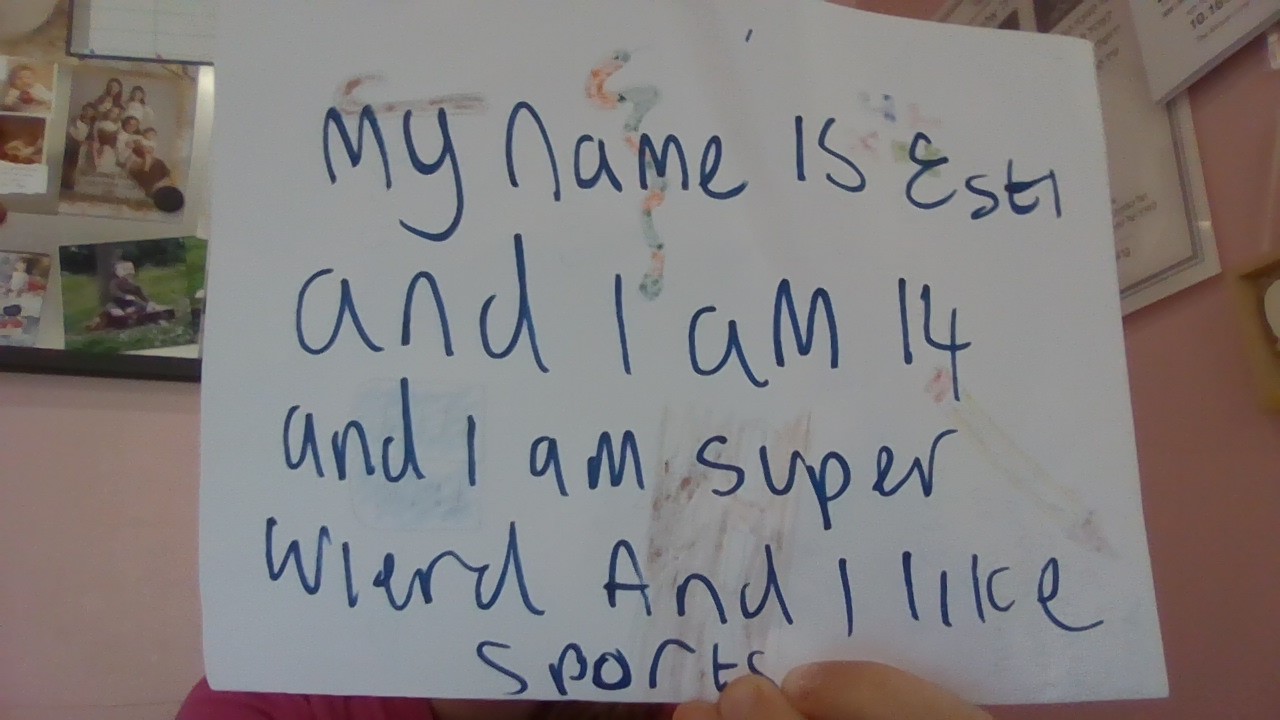 My name is Esti
and I am 14
and I am super
wierd And I like
sports
10.10